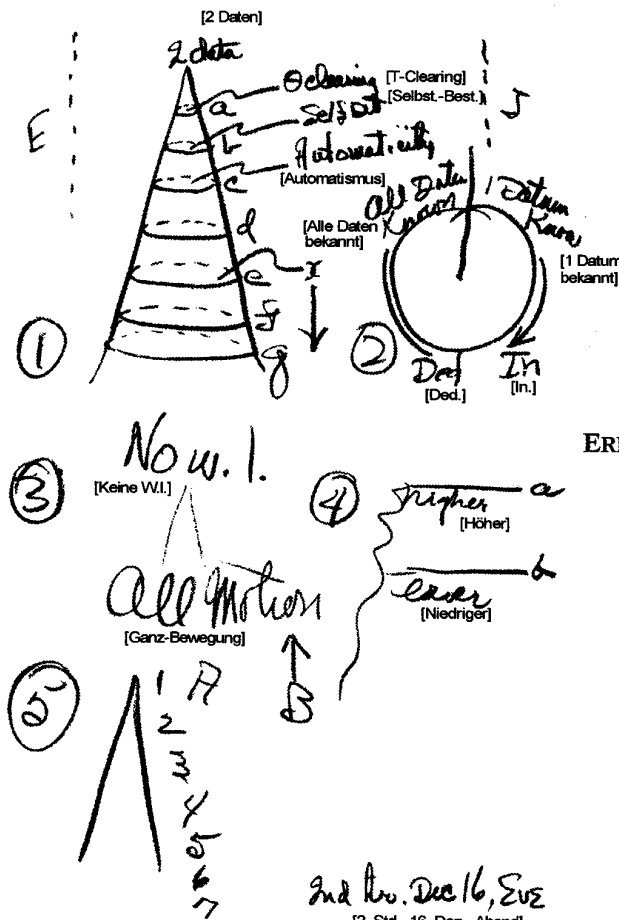 [2 Daten]
2 data
E
Θ clearing
[T-Clearing]
a
Self Det
[Selbst.-Best.]
b
J
Automaticity
[Automatismus]
c
All Data Known
[Alle Daten bekannt]
1 Datum Know
[1 Datum bekannt]
d
e
I
f
g
1
2
Ded
[Ded.]
In
[In.]
3
No W. I.
[Keine W.I.]
All Motion
[Ganz-Bewegung]
B
4
higher
[Höher]
a
b
lower
[Niedriger]
5
1 A
2
3
4
5
6
7
2nd hr. Dec 16, Eve